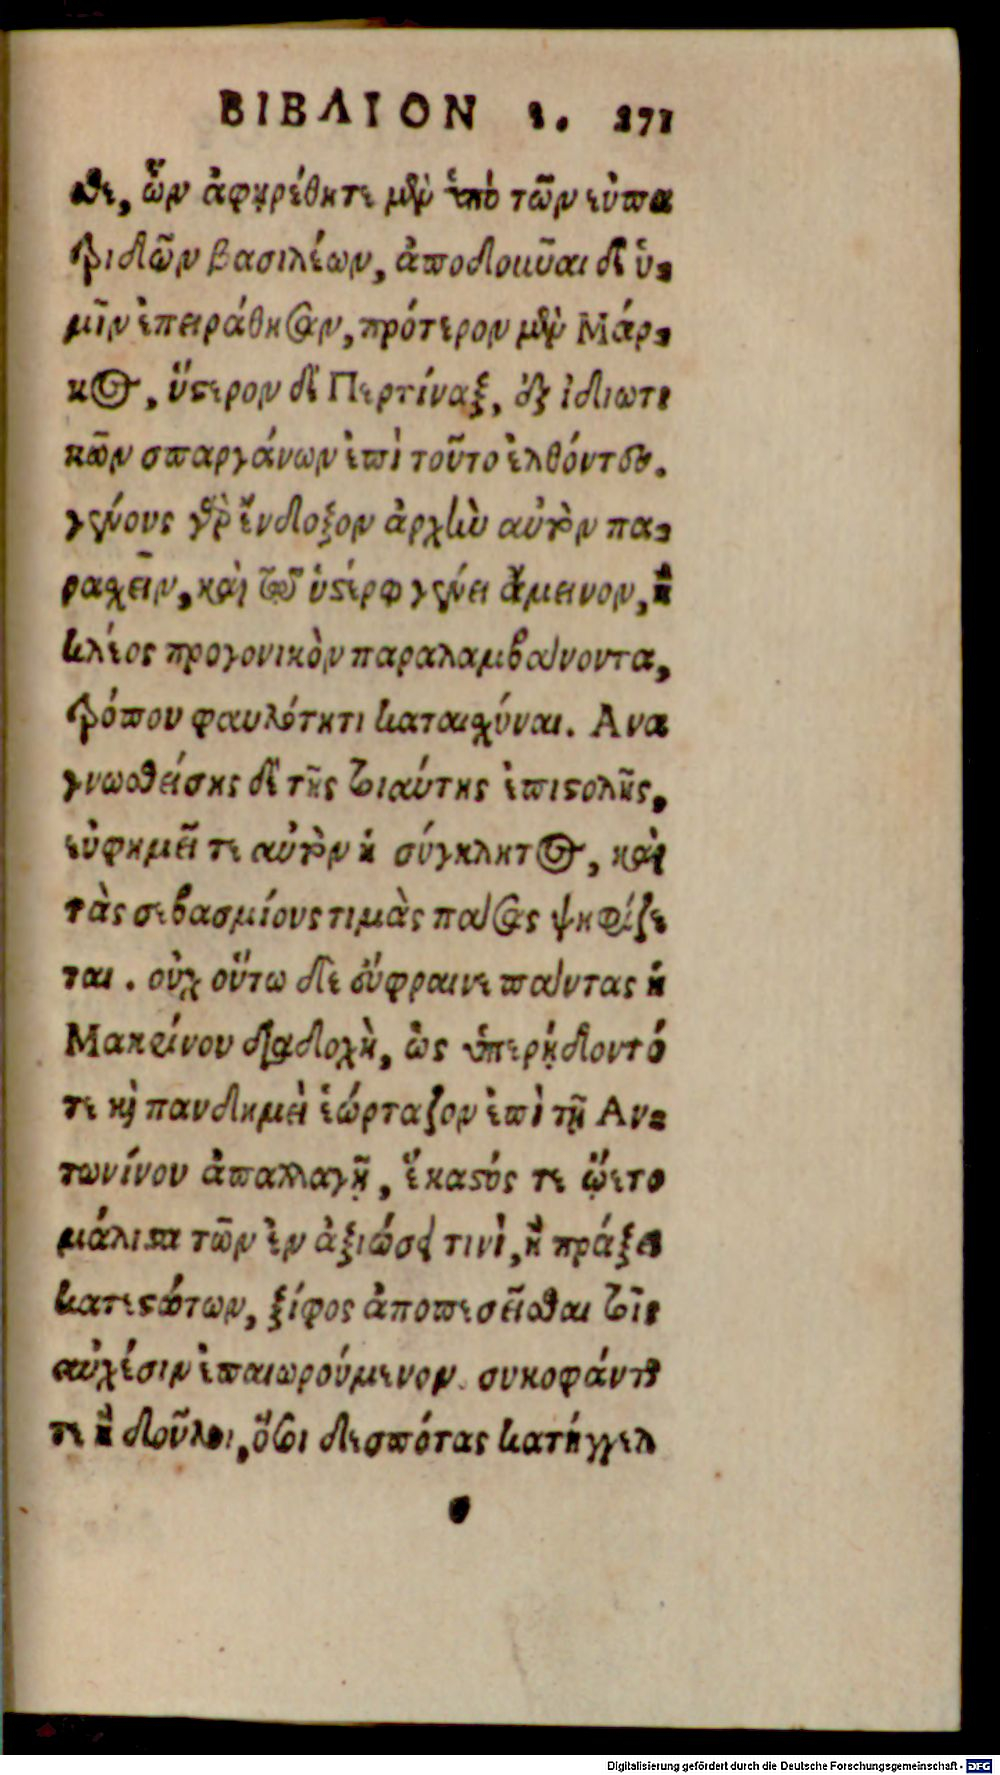 ΒΙΒΛΙΟΝ ε. 271
σθε, ὧν ἀφῃρέθητε μὲν ὑπὸ τῶν εὐπα
τριδῶν βασιλέων, ἀποδοῦναι δὲ ὑ-
μῖν ἐπειράθησαν, πρότερον μὲν Μάρ-
κος, ὕστερον δὲ Περτίναξ, ἐξ ἰδιωτι
κῶν σπαργάνων ἐπὶ τοῦτο ἐλθόντες.
γένους γὰρ ἔνδοξον ἀρχὴν αὐτὸν πα-
ρασχεῖν, καὶ τῷ ὑστέρῳ γένει ἄμεινον, ἢ
κλέος προγονικὸν παραλαμβάνοντα,
τρόπου φαυλότητι καταισχύναι. Ἀνα
γνωσθείσης δὲ τῆς τοιαύτης ἐπιστολῆς,
εὐφημεῖ τε αὐτὸν ἡ σύγκλητος, καὶ
τὰς σεβασμίους τιμὰς πάσας ψηφίζε
ται. οὐχ οὕτω δὲ εὔφραινε πάντας ἡ
Μακρίνου διαδοχὴ, ὡς ὑπερήδοντό
τε καὶ πανδημεὶ ἑώρταζον ἐπὶ τῇ Ἀν-
τωνίνου ἀπαλλαγῇ, ἕκαστός τε ᾤετο
μάλιστα τῶν ἐν ἀξιώσει τινὶ, ἢ πράξει
κατεστώτων, ξίφος ἀποπεσεῖσθαι τοῖς
αὐχέσιν ἐπαιωρούμενον. συκοφάνται
τε ἢ δοῦλοι, ὅσοι δεσπότας κατήγγελ
Digitalisierung gefördert durch die Deutsche Forschungsgemeinschaft - DFG